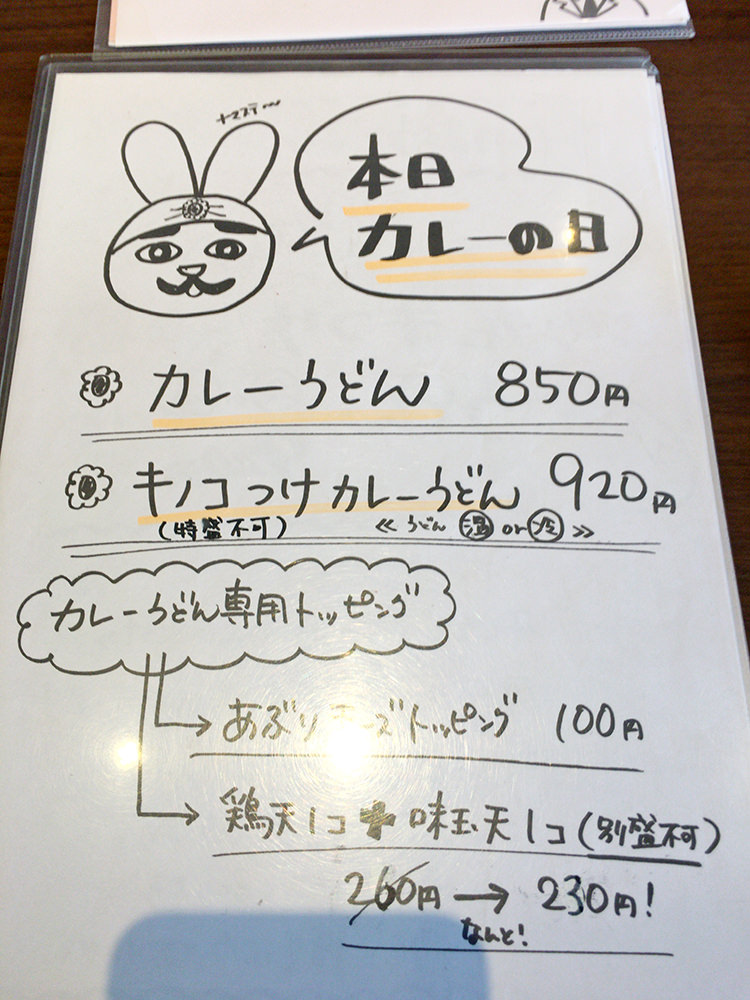 ナマステ〜
本日
カレーの日
カレーうどん 850円
キノコつけカレーうどん 920円
(特盛不可) 《うどん 温 or 冷》
カレーうどん専用トッピング
あぶりチーズトッピング 100円
鶏天1コ+味玉天1コ(別盛不可)
260円→230円!
なんと!